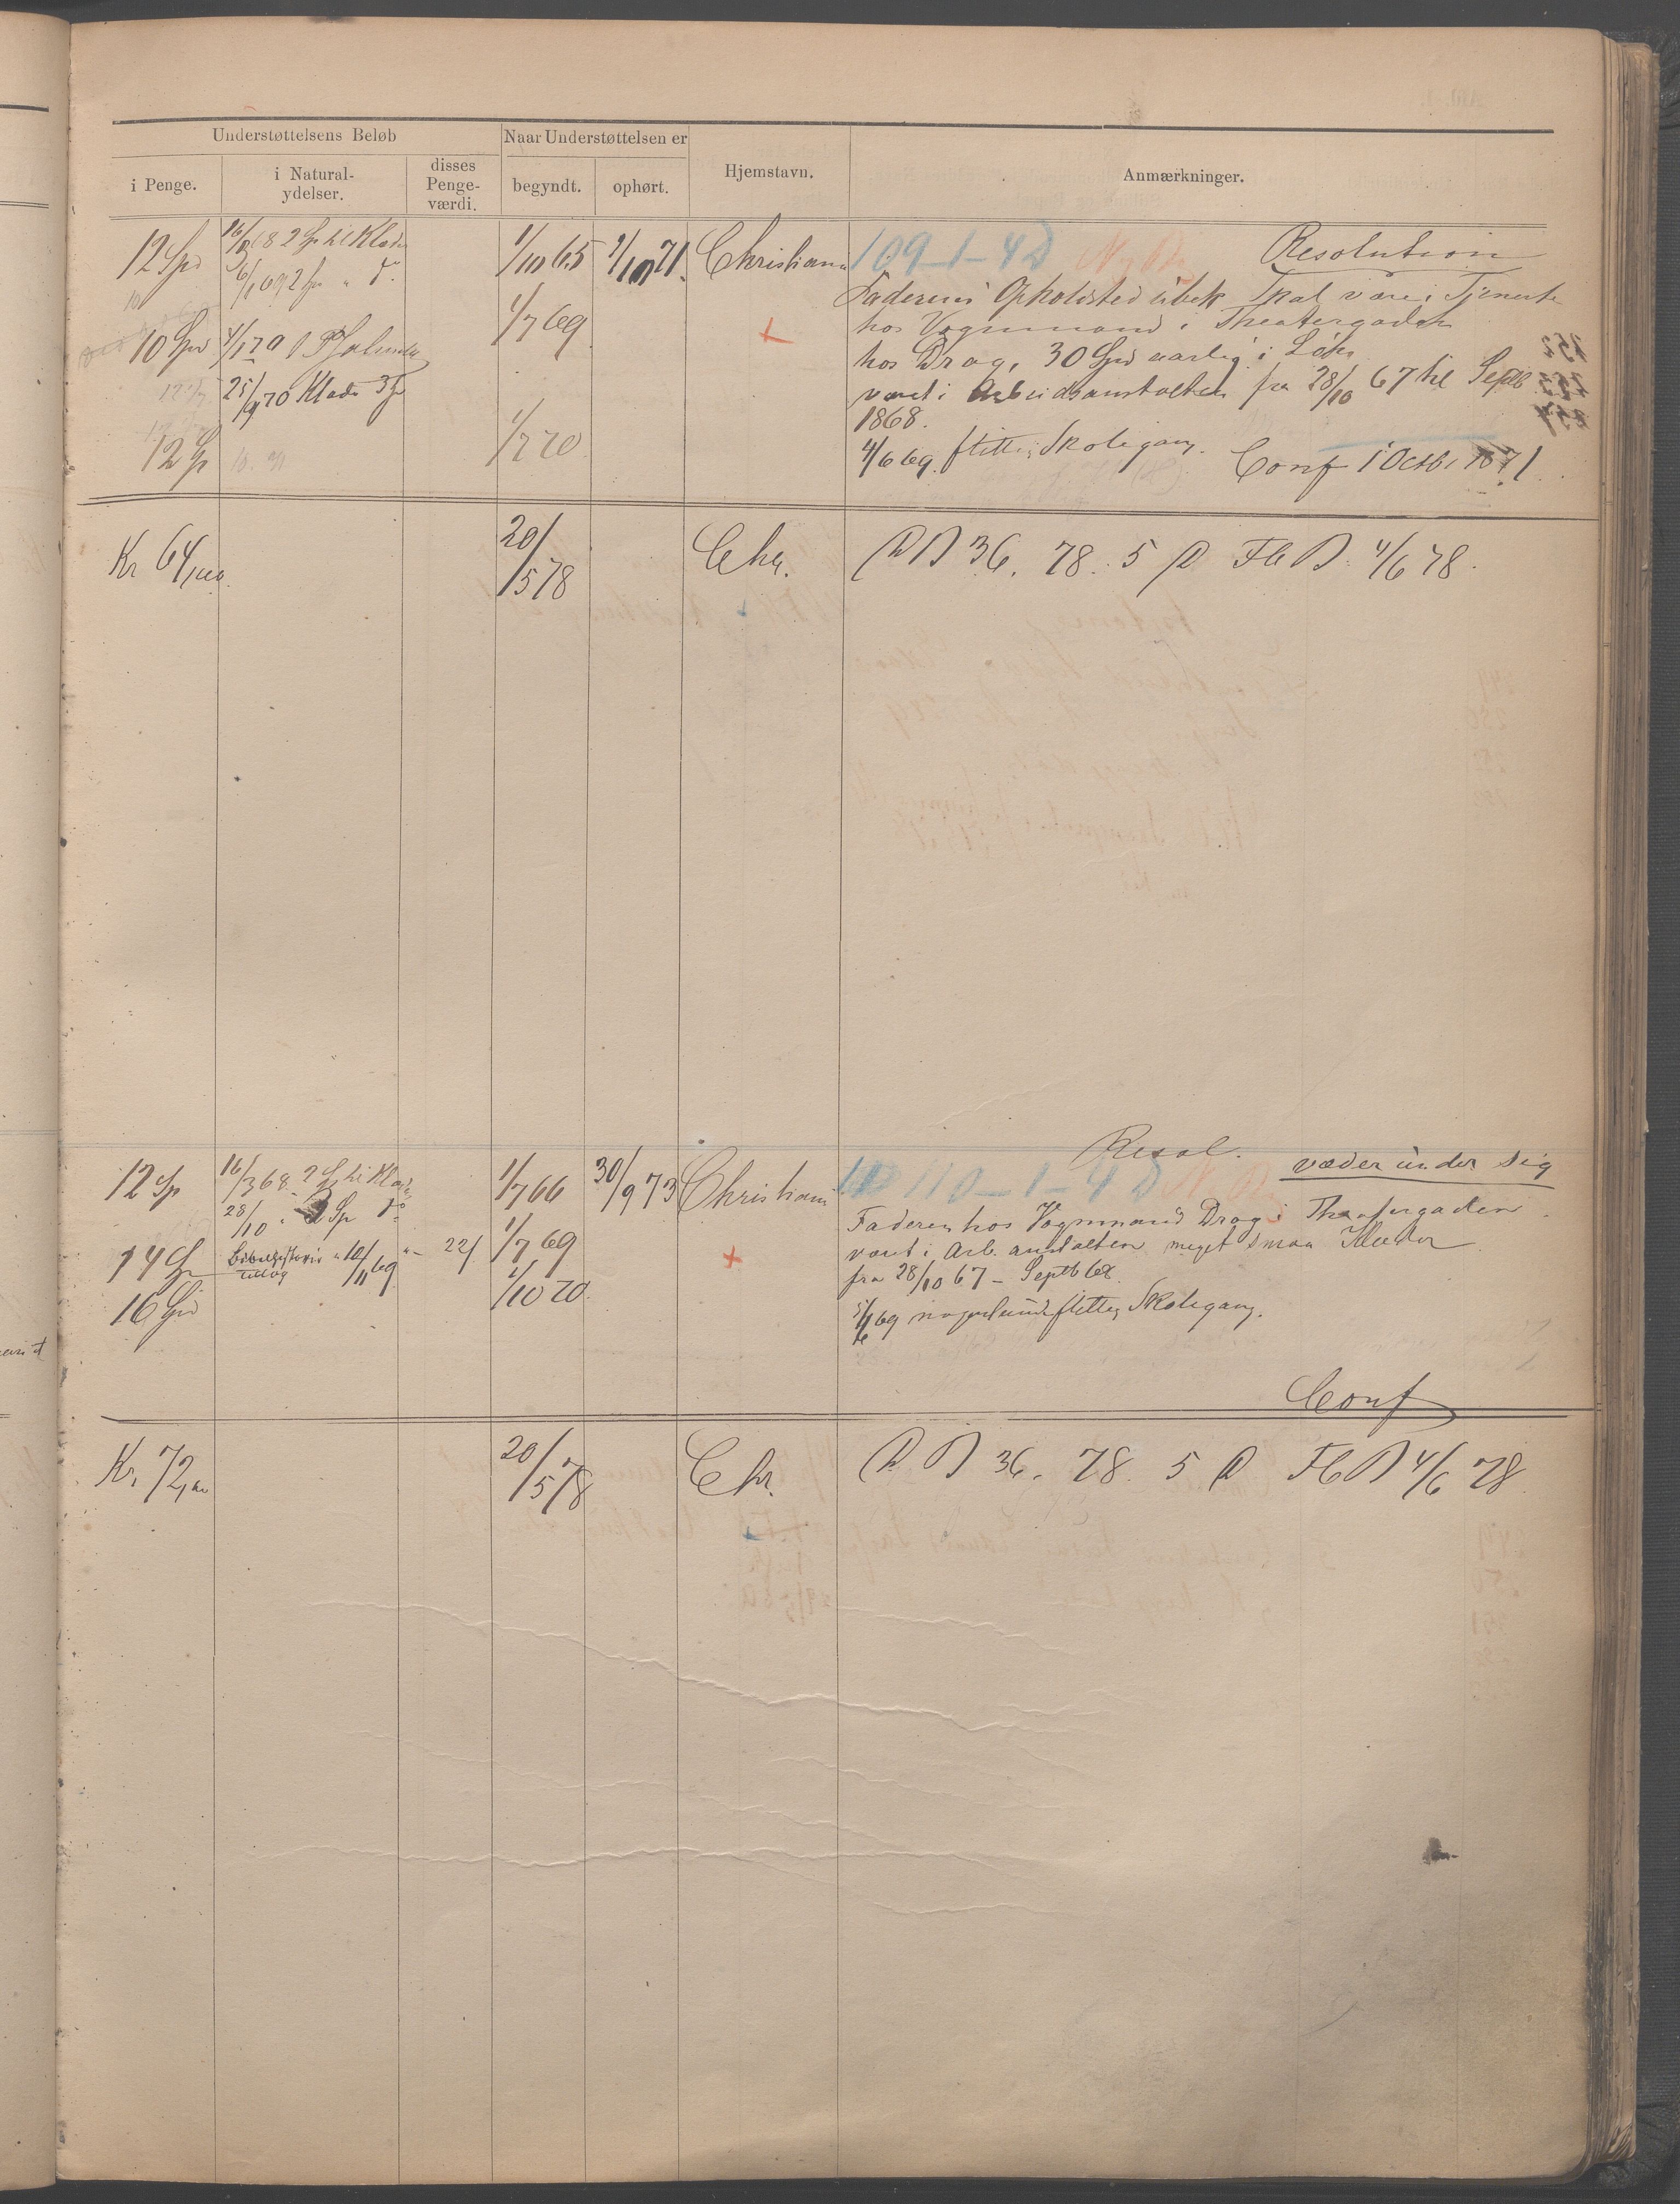 Understøttelsens Beløb
Naar Understøttelsen er
i Penge.
i Natural-
ydelser.
disses
Penge-
værdi.
begyndt.
ophørt.
Hjemstavn.
Anmærkninger.
12 Spd
16/3 68 2 Sp til Klæder
1/10 65
1/10 71
Christiania
109-1-4 D
Resolution
6/1 69 2 Sp " do
Faderens Opholdsted ubek Skal være i Tjeneste
hos Vognmand i Theatergaden
10 Spd
1/7 69
hos Drog, 30 Spd aarlig i Løn
25/9 70 Klæder 3 Sp
været i Arbeidsanstalten fra 28/10 67 til Septb
1868.
12 Sp
1/7 70
4/6 69. flittig Skolegang.
Conf 1 Octb 1871.
Kr 64,00
20/5 78
Chr.
36. 78. 5 4/6 78.
Resol.
væder under sig
12 Sp
16/3 68. 2 Sp til Klæder
1/7 66
30/9 73
Christiania
110-1-4 D
28/10 " 2 Sp do
Faderen hos Vognmand Drog i Theatergaden.
14 Sp
Bibelhistorie " 10/11 69 "
22/
1/7 69
været i Arb. anstalten meget smaa Klæder
Tillæg
fra 28/10 67 - Septb 68.
16 Spd
1/10 70.
69 nogenlunde flittig Skolegang.
Conf
Kr. 72,00
20/5 78
Chr.
36. 78. 5 4/6 78